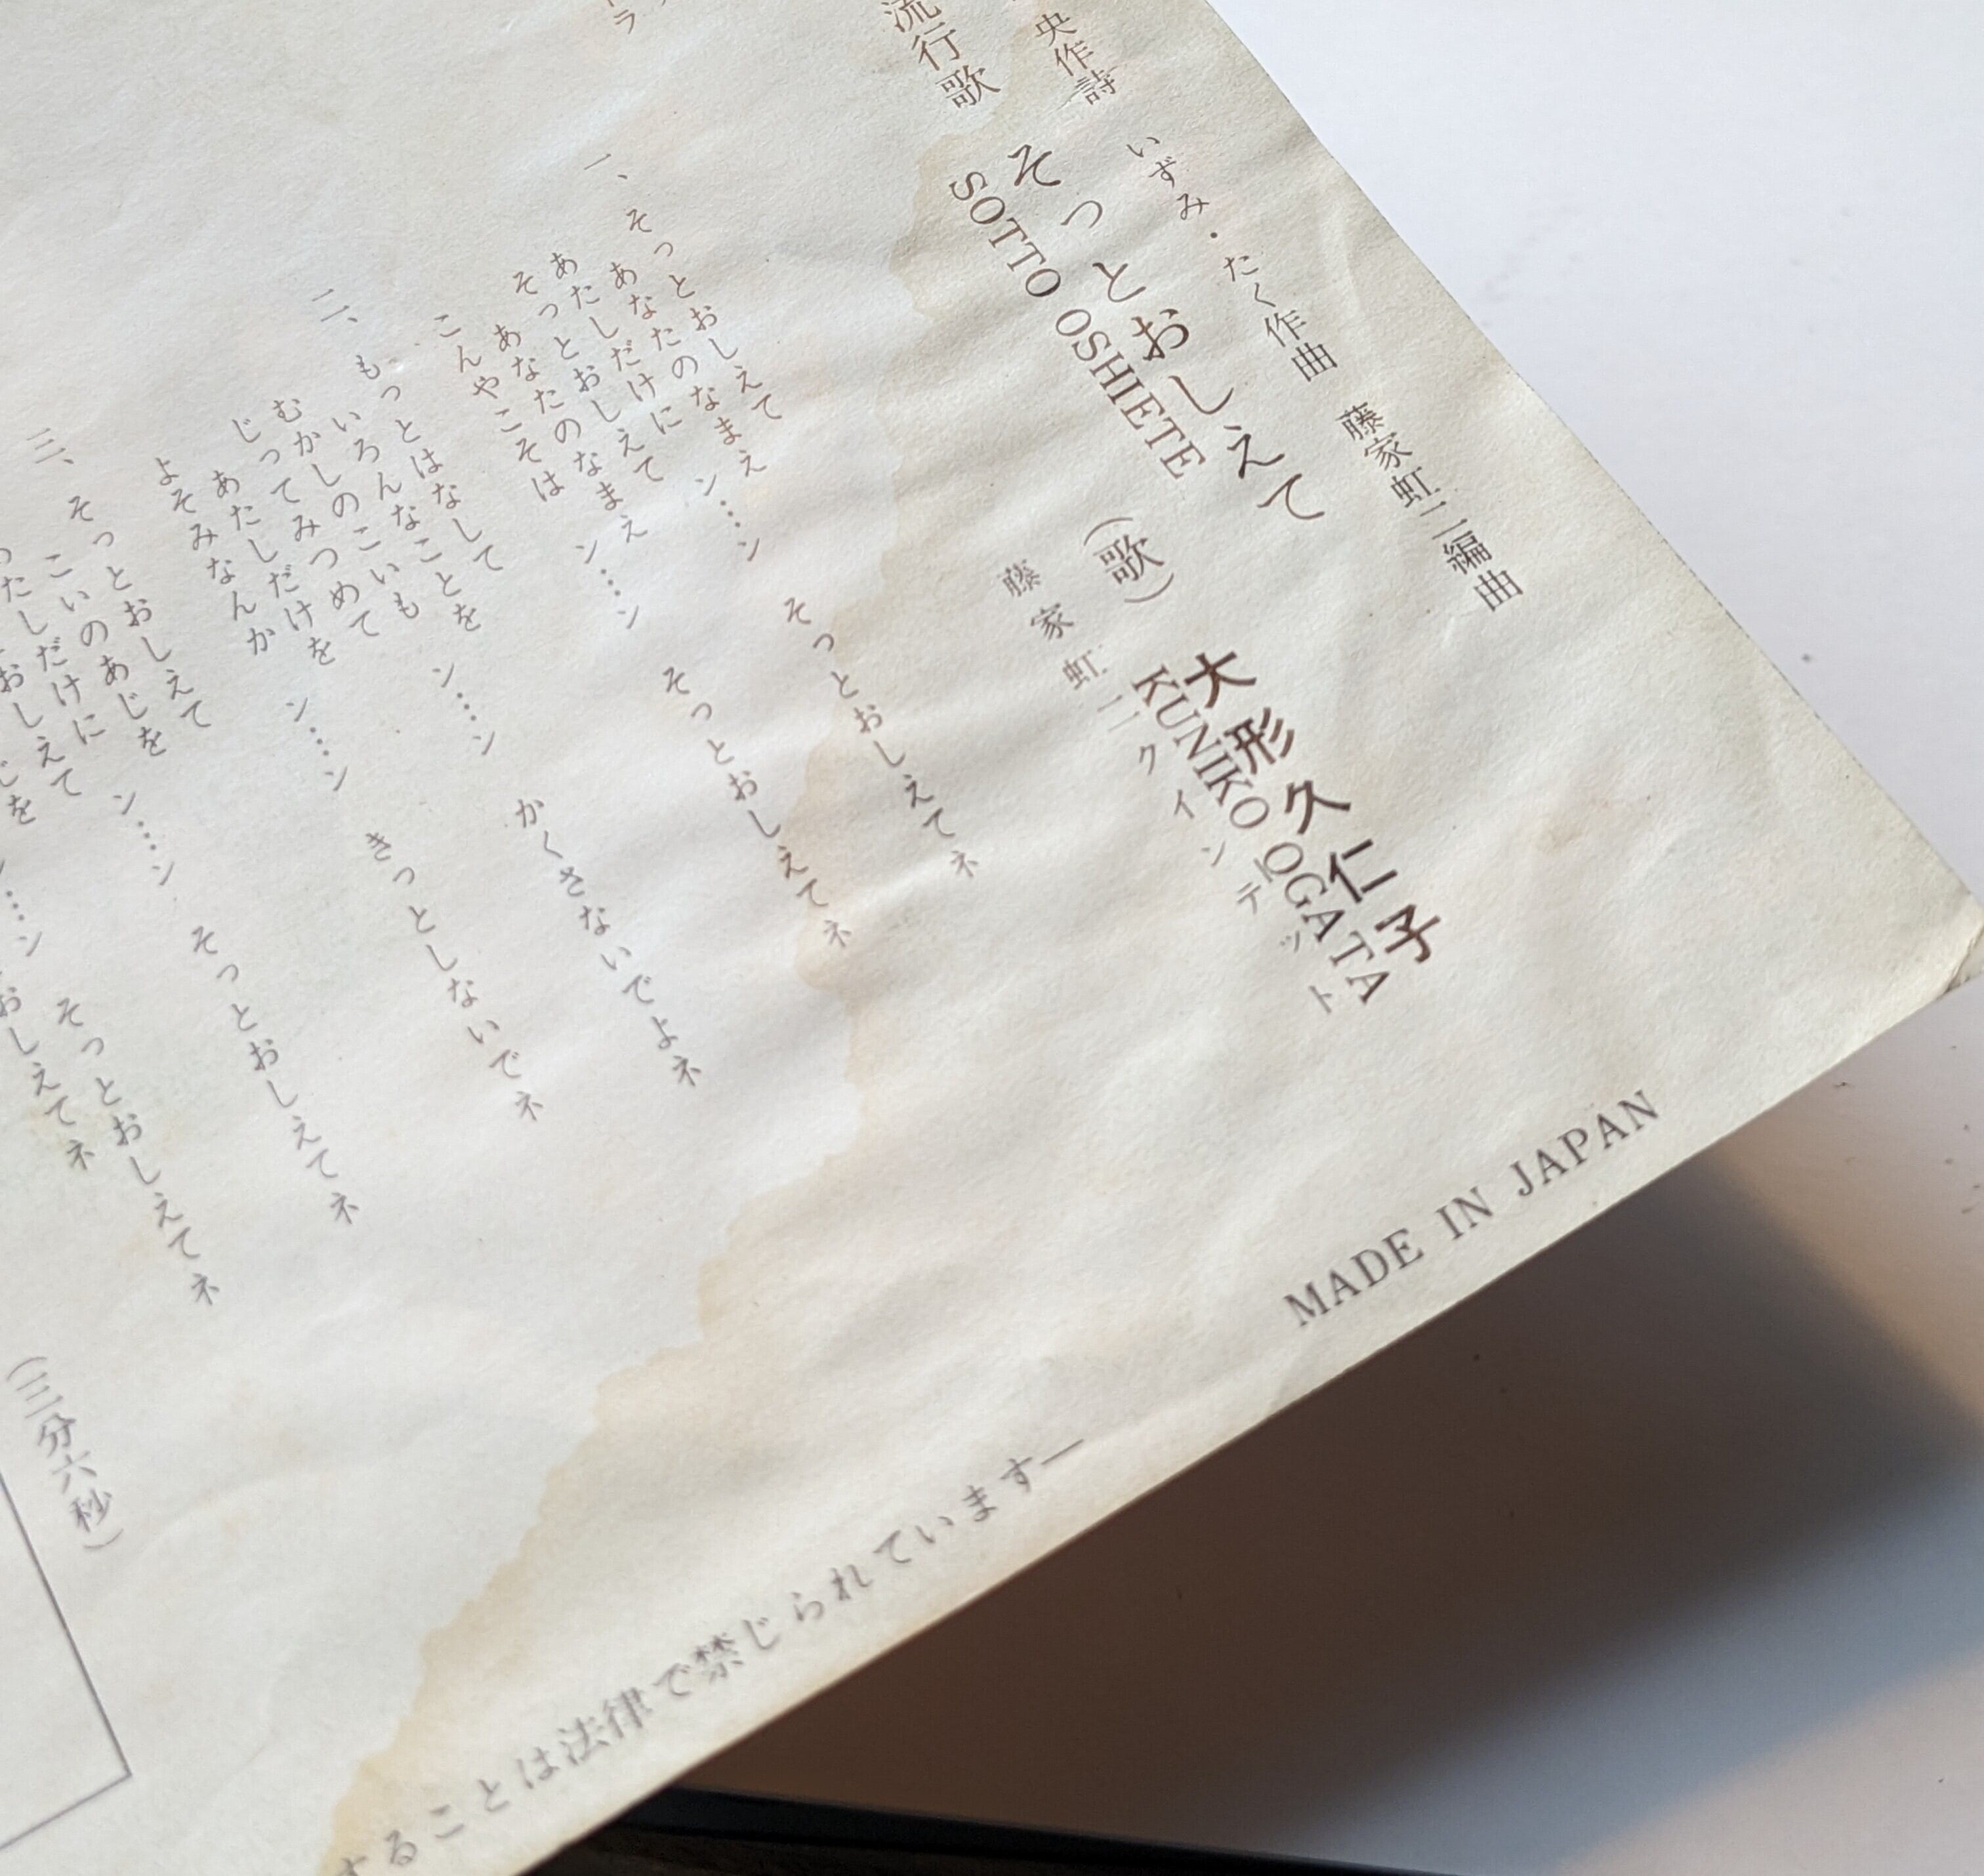 央作詩
いずみ・たく作曲
藤家虹二編曲
流行歌
そっとおしえて
SOTTO OSHIETE
(歌)
大形久仁子
KUNIKO OGATA
藤家虹二クインテット
一、そっとおしえて
あなたのなまえ ン……ン そっとおしえてネ
あたしだけに
そっとおしえて
あなたのなまえ ン……ン そっとおしえてネ
こんやこそは
二、もっとはなして
いろんなことを ン……ン かくさないでよネ
むかしのこいも
じってみつめて
あたしだけを ン……ン きっとしないでネ
よそみなんか
三、そっとおしえて
こいのあじを ン……ン そっとおしえてネ
たしだけに
おしえて
じを ン そっとおしえてネ
おしえてネ
(三分六秒)
することは法律で禁じられています—
MADE IN JAPAN